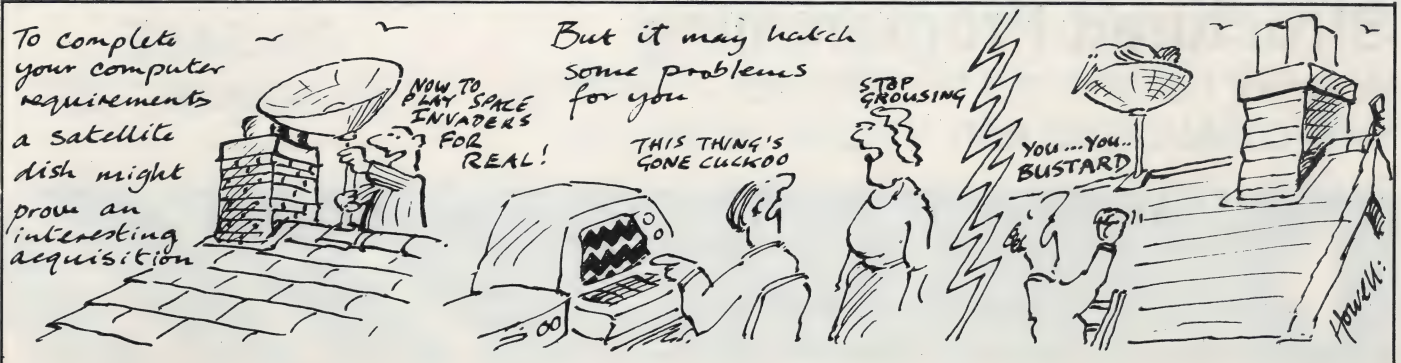 To complete
your computer
requirements
a satellite
dish might
prove an
interesting
acquisition
NOW TO
PLAY SPACE
INVADERS
FOR
REAL!
But it may hatch
some problems
for you
THIS THING'S
GONE CUCKOO
STOP
GROUSING
YOU...YOU..
BUSTARD
Howell: